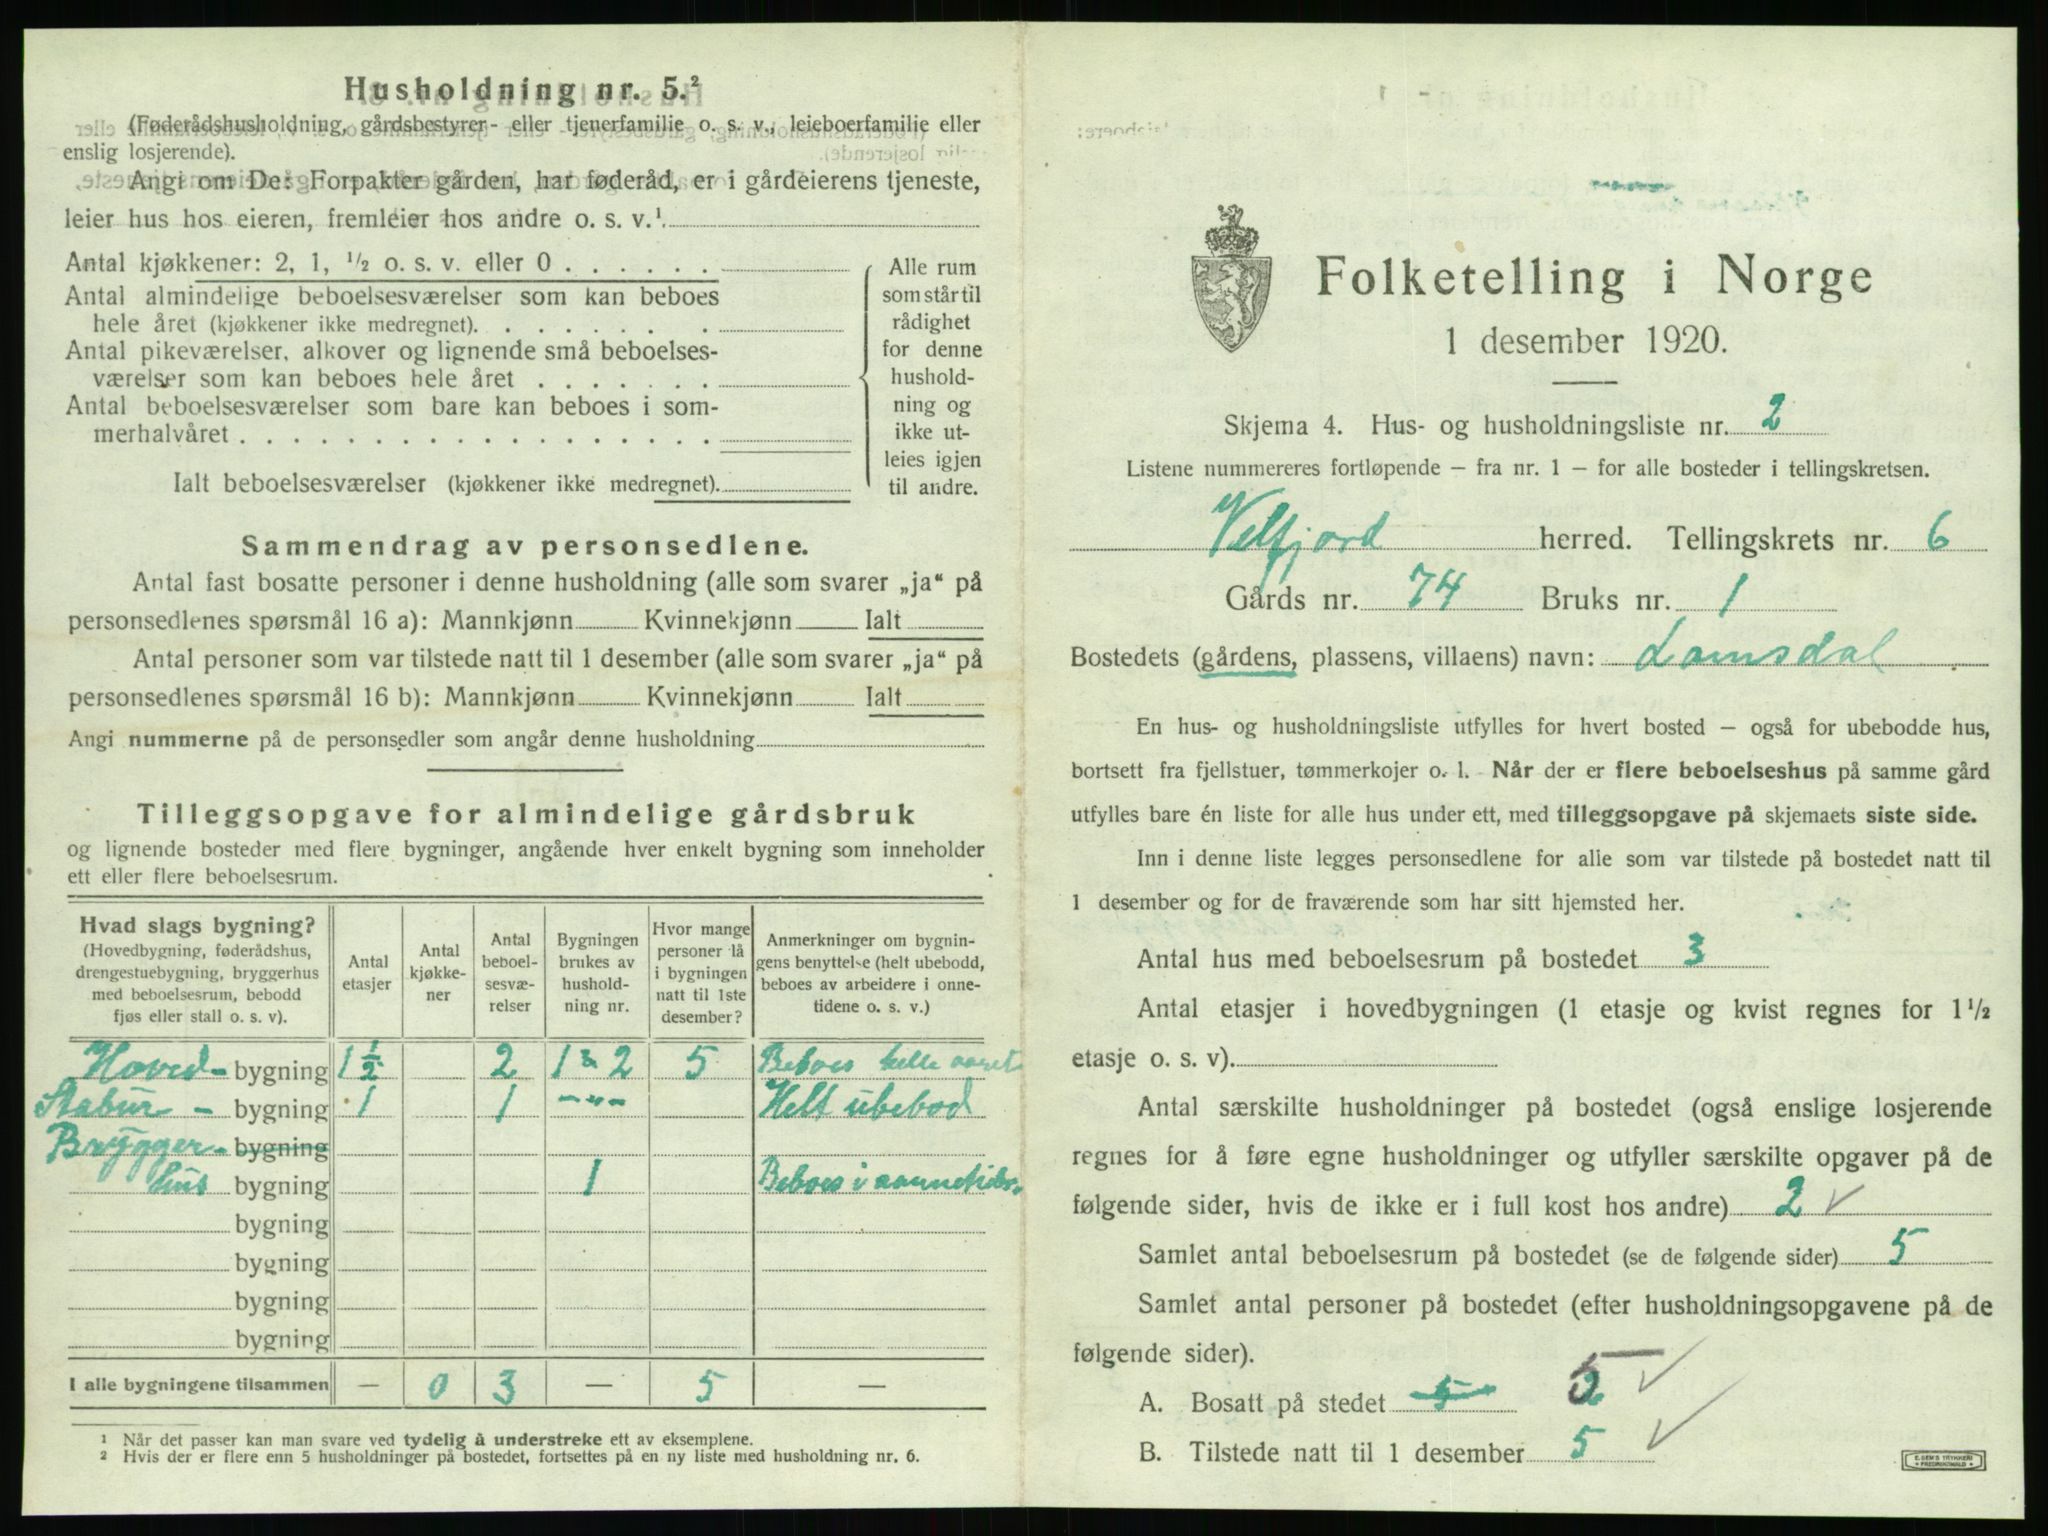 Husholdning nr. 5.²
(Føderådshusholdning, gårdsbestyrer- eller tjenerfamilie o. s. v., leieboerfamilie eller
enslig losjerende).
Angi om De: Forpakter gården, har føderåd, er i gårdeierens tjeneste,
leier hus hos eieren, fremleier hos andre o. s. v.¹
Antal kjøkkener: 2, 1, ½ o. s. v. eller 0 . . . . . .
Antal almindelige beboelsesværelser som kan beboes
hele året (kjøkkener ikke medregnet). . . . . . . .
Antal pikeværelser, alkover og lignende små beboelses-
værelser som kan beboes hele året . . . . . . .
Antal beboelsesværelser som bare kan beboes i som-
merhalvåret . . . . . . . . . . . . . . . . . .
Ialt beboelsesværelser (kjøkkener ikke medregnet).
Alle rum
som står til
rådighet
for denne
hushold-
ning og
ikke ut-
leies igjen
til andre.
Sammendrag av personsedlene.
Antal fast bosatte personer i denne husholdning (alle som svarer „ja“ på
personsedlenes spørsmål 16 a): Mannkjønn Kvinnekjønn Ialt
Antal personer som var tilstede natt til 1 desember (alle som svarer „ja“ på
personsedlenes spørsmål 16 b): Mannkjønn Kvinnekjønn Ialt
Angi nummerne på de personsedler som angår denne husholdning
Tilleggsopgave for almindelige gårdsbruk
og lignende bosteder med flere bygninger, angående hver enkelt bygning som inneholder
ett eller flere beboelsesrum.
Hvad slags bygning?
(Hovedbygning, føderådshus,
drengestuebygning, bryggerhus
med beboelsesrum, bebodd
fjøs eller stall o. s. v).
Antal
etasjer
Antal
kjøkke-
ner
Antal
beboel-
sesvæ-
relser
Bygningen
brukes av
hushold-
ning nr.
Hvor mange
personer lå
i bygningen
natt til 1ste
desember?
Anmerkninger om bygnin-
gens benyttelse (helt ubebodd,
beboes av arbeidere i onne-
tidene o. s. v.)
Hoved- bygning 1 ½ 2 1 & 2 5 Beboes hele aaret
Stabur - bygning 1 1 -"- Helt ubebod
Brygger- bygning
hus bygning 1 Beboes i aannetider
bygning
bygning
bygning
bygning
I alle bygningene tilsammen — 0 3 — 5 —
¹ Når det passer kan man svare ved tydelig å understreke ett av eksemplene.
² Hvis der er flere enn 5 husholdninger på bostedet, fortsettes på en ny liste med husholdning nr. 6.
Folketelling i Norge
1 desember 1920.
Skjema 4. Hus- og husholdningsliste nr. 2
Listene nummereres fortløpende – fra nr. 1 – for alle bosteder i tellingskretsen.
Velfjord herred. Tellingskrets nr. 6
Gårds nr. 74 Bruks nr. 1
Bostedets (gårdens, plassens, villaens) navn: Lomsdal
En hus- og husholdningsliste utfylles for hvert bosted – også for ubebodde hus,
bortsett fra fjellstuer, tømmerkojer o. l. Når der er flere beboelseshus på samme gård
utfylles bare én liste for alle hus under ett, med tilleggsopgave på skjemaets siste side.
Inn i denne liste legges personsedlene for alle som var tilstede på bostedet natt til
1 desember og for de fraværende som har sitt hjemsted her.
Antal hus med beboelsesrum på bostedet 3
Antal etasjer i hovedbygningen (1 etasje og kvist regnes for 1 ½
etasje o. s. v).
Antal særskilte husholdninger på bostedet (også enslige losjerende
regnes for å føre egne husholdninger og utfyller særskilte opgaver på de
følgende sider, hvis de ikke er i full kost hos andre) 2 ✓
Samlet antal beboelsesrum på bostedet (se de følgende sider) 5
Samlet antal personer på bostedet (efter husholdningsopgavene på de
følgende sider).
A. Bosatt på stedet 5 5 ✓
B. Tilstede natt til 1 desember 5 ✓
E. SEM'S TRYKKERI
FREDRIKSHALD